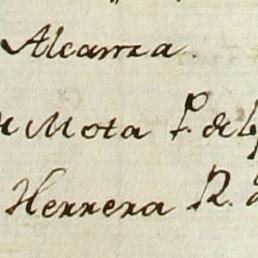 Alcarra.
Mota P. de
Herrera R.